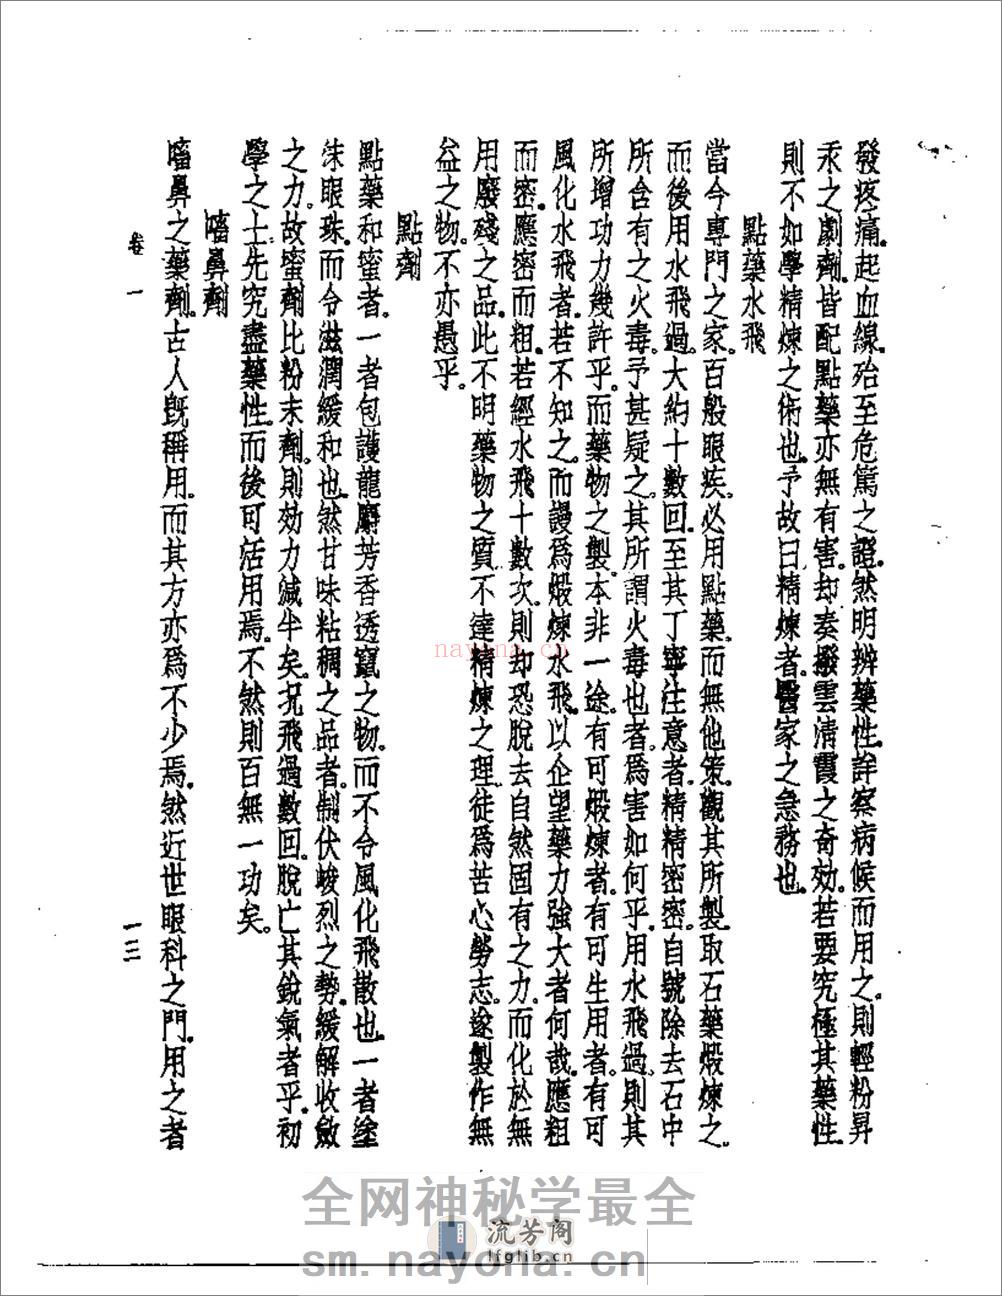 發疼痛。起血線。殆至危篤之證。然明辨藥性。詳察病候而用之。則輕粉昇
汞之劇劑。皆配點藥亦無有害。却奏撥雲清霞之奇効。若要究極其藥性。
則不如學精煉之術也。予故曰精煉者。醫家之急務也。
點藥水飛
當今專門之家。百般眼疾。必用點藥。而無他策。觀其所製。取石藥煅煉之。
而後用水飛過。大約十數回。至其丁寧注意者。精精密密。自號除去石中
所含有之火毒。予甚疑之。其所謂火毒也者。爲害如何乎。用水飛過。則其
所增功力幾許乎。而藥物之製。本非一途。有可煅煉者。有可生用者。有可
風化水飛者。若不知之。而謾爲煅煉水飛。以企望藥力強大者何哉。應粗
而密。應密而粗。若經水飛十數次。則却恐脫去自然固有之力。而化於無
用廢殘之品。此不明藥物之質。不達精煉之理。徒爲苦心勞志。遂製作無
益之物。不亦愚乎。
點劑
點藥和蜜者。一者包護龍麝芳香透竄之物。而不令風化飛散也。一者塗
沫眼珠。而令滋潤緩和也。然甘味粘稠之品者。制伏峻烈之勢。緩解收斂
之力。故蜜劑比粉末劑。則効力減半矣。況飛過數回。脫亡其銳氣者乎。初
學之士。先究盡藥性。而後可活用焉。不然則百無一功矣。
㗜鼻劑
㗜鼻之藥劑。古人既稱用。而其方亦爲不少焉。然近世眼科之門。用之者
卷一
一三
nayona.cn
全网神秘学最全
流芳阁
lfglib.cn
sm.nayona.cn